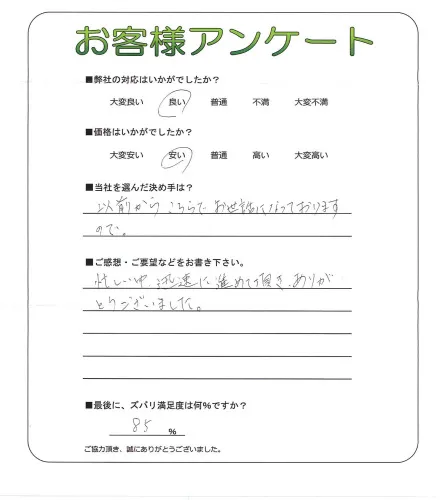 お客様アンケート
■弊社の対応はいかがでしたか？
大変良い 良い 普通 不満 大変不満
■価格はいかがでしたか？
大変安い 安い 普通 高い 大変高い
■当社を選んだ決め手は？
以前からこちらでお世話になっております
ので。
■ご感想・ご要望などをお書き下さい。
忙しい中、迅速に進めて頂き、ありが
とうございました。
■最後に、ズバリ満足度は何％ですか？
85 ％
ご協力頂き、誠にありがとうございました。